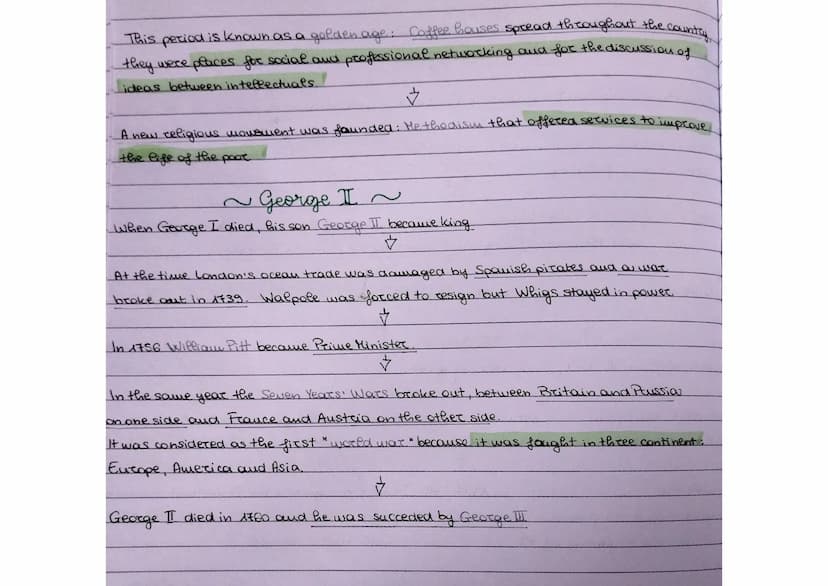 This period is known as a golden age: Coffee houses spread throughout the country,
they were places for social and professional networking and for the discussion of
ideas between intellectuals.
A new religious movement was founded: Methodism that offered services to improve
the life of the poor
~ George II ~
When George I died, his son George II became king
At the time London's ocean trade was damaged by Spanish pirates and a war
broke out in 1739. Walpole was forced to resign but Whigs stayed in power
In 1756 William Pitt became Prime Minister.
In the same year the Seven Years' Wars broke out, between Britain and Prussia
on one side and France and Austria on the other side.
It was considered as the first "world war" because it was fought in three continent:
Europe, America and Asia.
George II died in 1760 and he was succeded by George III